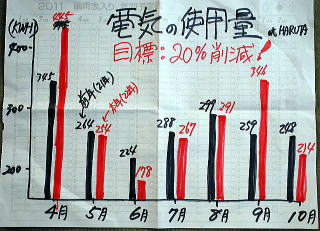 (KWH)
電気の使用量
at HARUTA
目標:20%削減!
400
300
200
345
445
264
254
224
178
288
267
299
291
259
346
248
214
4月
5月
6月
7月
8月
9月
10月